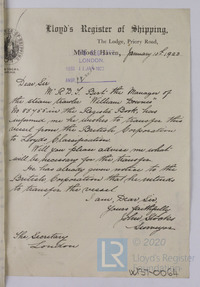 Lloyd's Register of Shipping,
The Lodge, Priory Road,
Milford Haven, January 10th 1923
LONDON
Dear Sir
Mr R. D. J. Burt the Manager of
the steam trawler "William Downes"
in the Register Book, has
informed me he wishes to transfer this
vessel from the British Corporation
to Lloyds Classification.
Will you please advise me what
will be necessary for this transfer.
He has already given notice to the
British Corporation that he intends
to transfer the vessel.
I am, Dear Sir,
Yours faithfully,
John
Surveyor.
The Secretary
London
W324-0064
© 2020
Lloyd's Register
Foundation